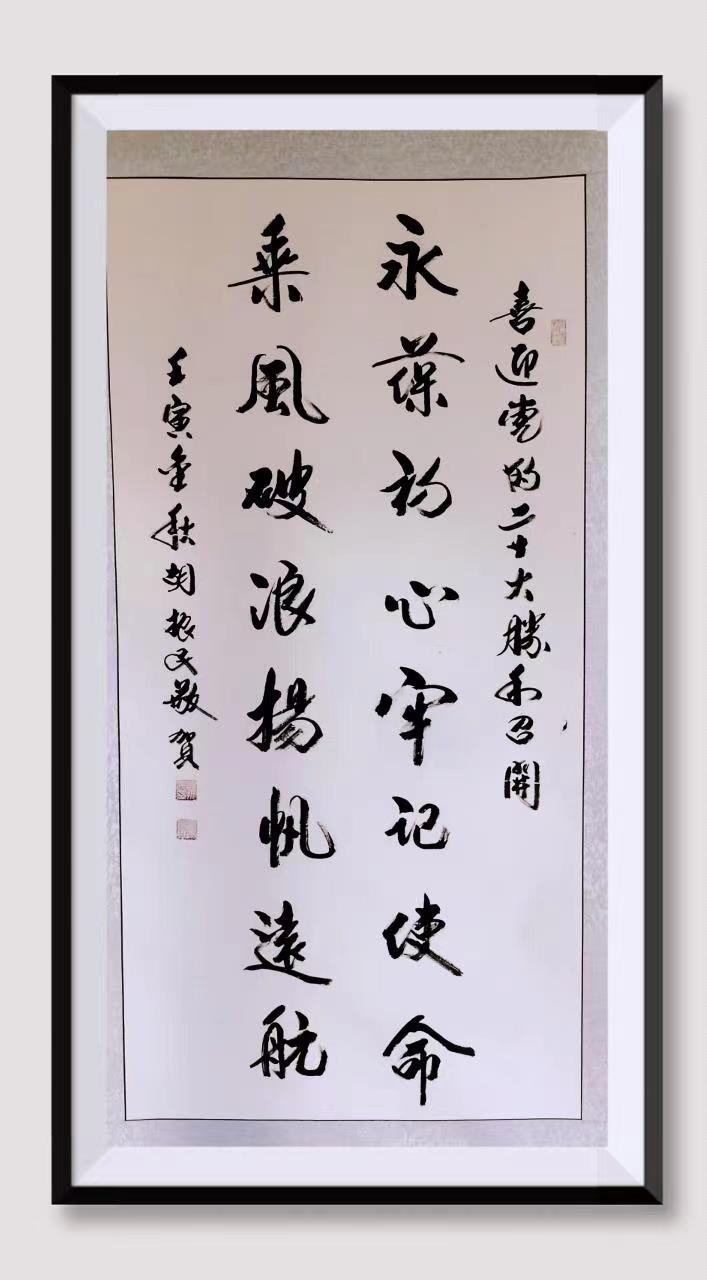 喜迎党的二十大勝利召開
永葆初心牢记使命
乘風破浪揚帆遠航
壬寅金秋胡振民敬賀